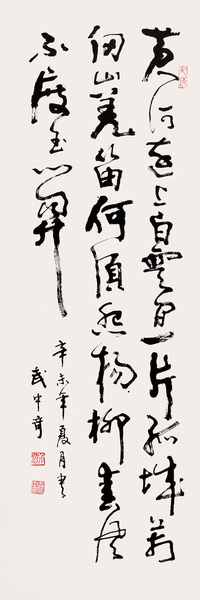 黄河遠上白雲間一片孤城萬
仞山羌笛何須怨楊柳春風
不度玉門關
辛未年夏月書
武中奇